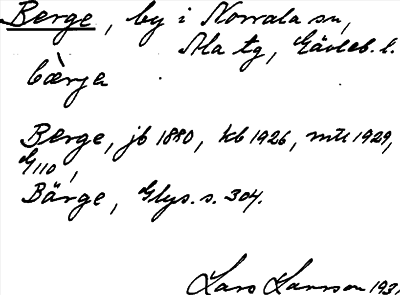 Berge, by i Norrala sn,
Ala tg, Gävleb. l.
bàrja
Berge, jb 1880, kb 1926, mtl 1929,
G 110,
Bärge, Glys. s. 304.
Lars Larsson 1931